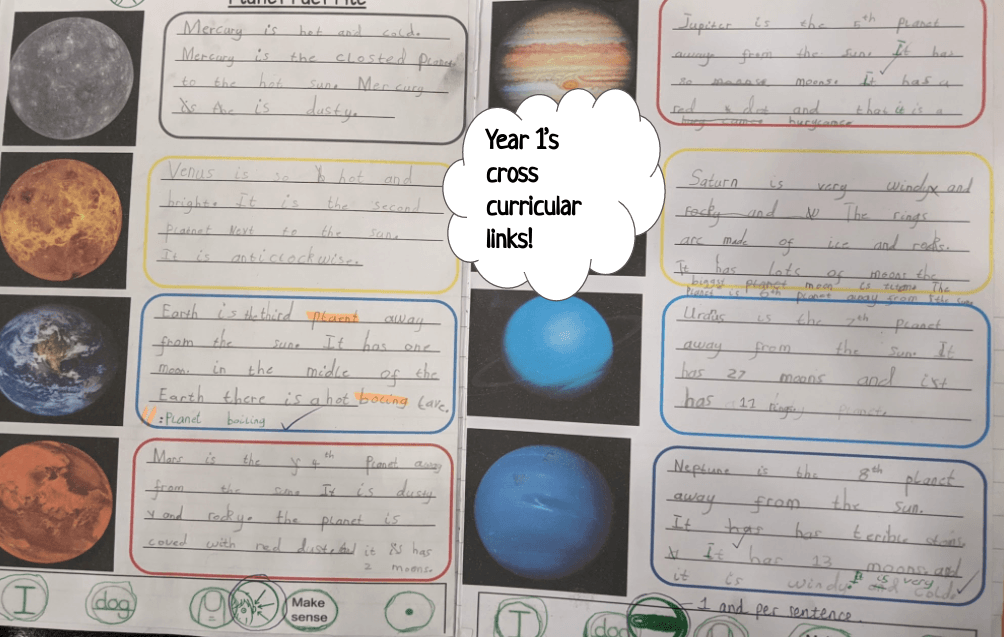 Planet Fact File
Mercury is hot and cold.
Mercury is the closted planet
to the hot sun. Mercury
is dusty.
Venus is so hot and
bright. It is the second
planet next to the sun.
It is anticlockwise.
Earth is the third plaent away
from the sun. It has one
moon. in the midle of the
Earth there is a hot bocing
:Planet boiling
Mars is the 4th Planet away
from the sun. It is dusty
and rocky. the planet is
coved with red dust and it has
2 moons.
I
dog
Make
sense
Year 1's
cross
curricular
links!
Jupiter is the 5th Planet
away from the sun. It has
moons. It has a
red dot and that is a
hurycance
Saturn is very windy and
rocky and The rings
are made of ice and rocks.
It has lots of moons the
biggest planet moon is The
Planet is 6th planet away from the sun
is the 7th Planet
away from the sun. It
has 27 moons and
has 11 rings
Neptune is the 8th planet
away from the sun.
It has has terible
It has 13 moons and
it is windy It is very cold.
I
dog
1 and per sentence.